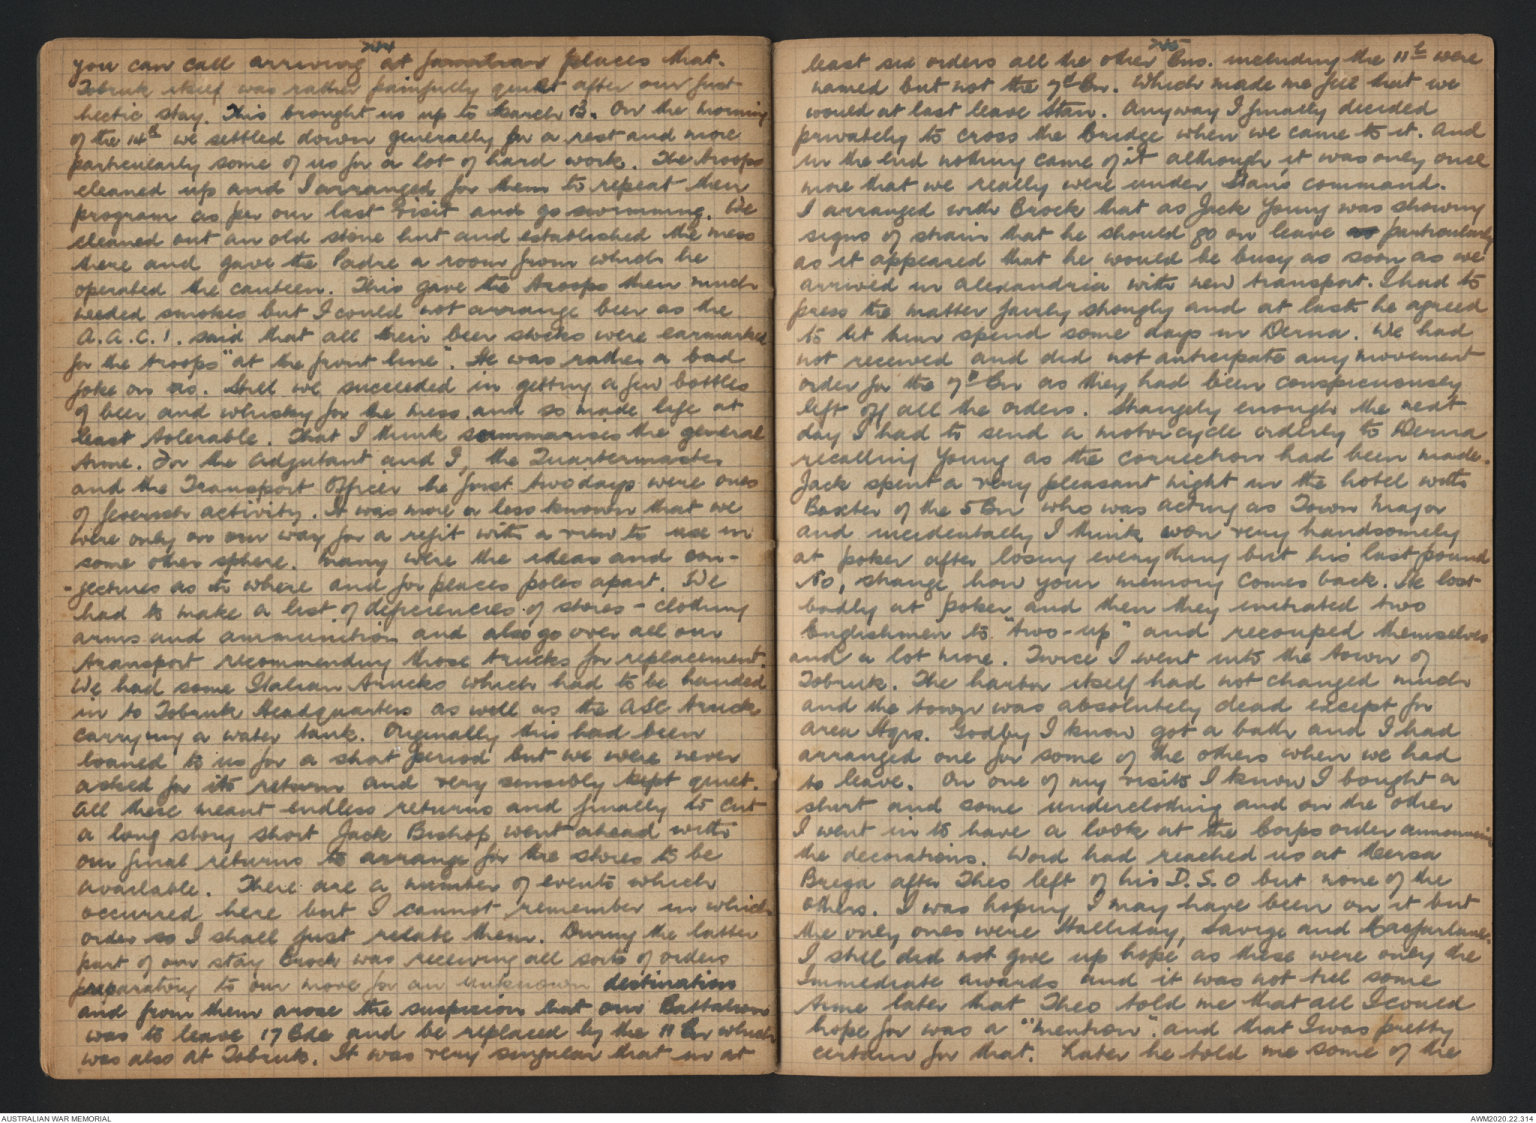 244
you can call arriving at familiar places that.
Tobruk itself was rather painfully quiet after our first
hectic stay. This brought us up to March 13. On the morning
of the 14th we settled down generally for a rest and more
particularly some of us for a lot of hard work. The troops
cleaned up and I arranged for them to repeat their
program as per our last visit and go swimming. We
cleaned out an old stone hut and established the mess
there and gave the Padre a room from which he
operated the canteen. This gave the troops their much
needed smokes but I could not arrange beer as the
A.A.C.! said that all their beer stocks were earmarked
for the troops "at the front line". It was rather a bad
joke on us. Still we succeeded in getting a few bottles
of beer and whisky for the mess and so made life at
least tolerable. That I think summarises the general
time. For the Adjutant and I, the Quartermaster
and the Transport Officer the first two days were ones
of feverish activity. It was more or less known that we
were only on our way for a refit with a view to use in
some other sphere. Many were the ideas and con-
-jectures as to where and for places poles apart. We
had to make a list of deficiencies of stores - clothing
arms and ammunition and also go over all our
transport recommending those trucks for replacement.
We had some Italian trucks which had to be handed
in to Tobruk Headquarters as well as the ASC truck
carrying a water tank. Originally this had been
loaned to us for a short period but we were never
asked for its return and very sensibly kept quiet.
All these meant endless returns and finally to cut
a long story short Jack Bishop went ahead with
our final returns to arrange for the stores to be
available. There are a number of events which
occurred here but I cannot remember in which
order so I shall just relate them. During the latter
part of our stay Brock was receiving all sorts of orders
preparatory to our move for an unknown destination
and from them arose the suspicion that our Battalion
was to leave 17 Bde and be replaced by the 11 Bn which
was also at Tobruk. It was very singular that in at
245
least six orders all the other Bns. including the 11th were
named but not the 7th Bn. Which made me feel that we
would at last leave Stan. Anyway I finally decided
privately to cross the bridge when we came to it. And
in the end nothing came of it although it was only once
more that we really were under Stan's command.
I arranged with Brock that as Jack Young was showing
signs of strain that he should go on leave particularly
as it appeared that he would be busy as soon as we
arrived in Alexandria with new transport. I had to
press the matter fairly strongly and at last he agreed
to let him spend some days in Derna. We had
not received and did not anticipate any movement
order for the 7th Bn as they had been conspicuously
left off all the orders. Strangely enough the next
day I had to send a motor cycle orderly to Derna
recalling Young as the correction had been made.
Jack spent a very pleasant night in the hotel with
Baxter of the 5 Bn who was acting as Town Major
and incidentally I think won very handsomely
at poker after losing everything but his last pound
No, strange how your memory comes back. He lost
badly at poker and then they initiated two
Englishmen to "two-up" and recouped themselves
and a lot more. Twice I went into the town of
Tobruk. The harbor itself had not changed much
and the town was absolutely dead except for
Area Hqrs. Godby I know got a bath and I had
arranged one for some of the others when we had
to leave. On one of my visits I know I bought a
shirt and some underclothing and on the other
I went in to have a look at the Corps order announcing
the decorations. Word had reached us at Mersa
Brega after Theo left of his D.S.O but none of the
others. I was hoping I may have been on it but
the only ones were Halliday, Savige and Macfarlane.
I still did not give up hope as these were only the
Immediate awards and it was not till some
time later that Theo told me that all I could
hope for was a "mention". and that I was pretty
certain for that. Later he told me some of the
AUSTRALIAN WAR MEMORIAL
AWM2020.22.314